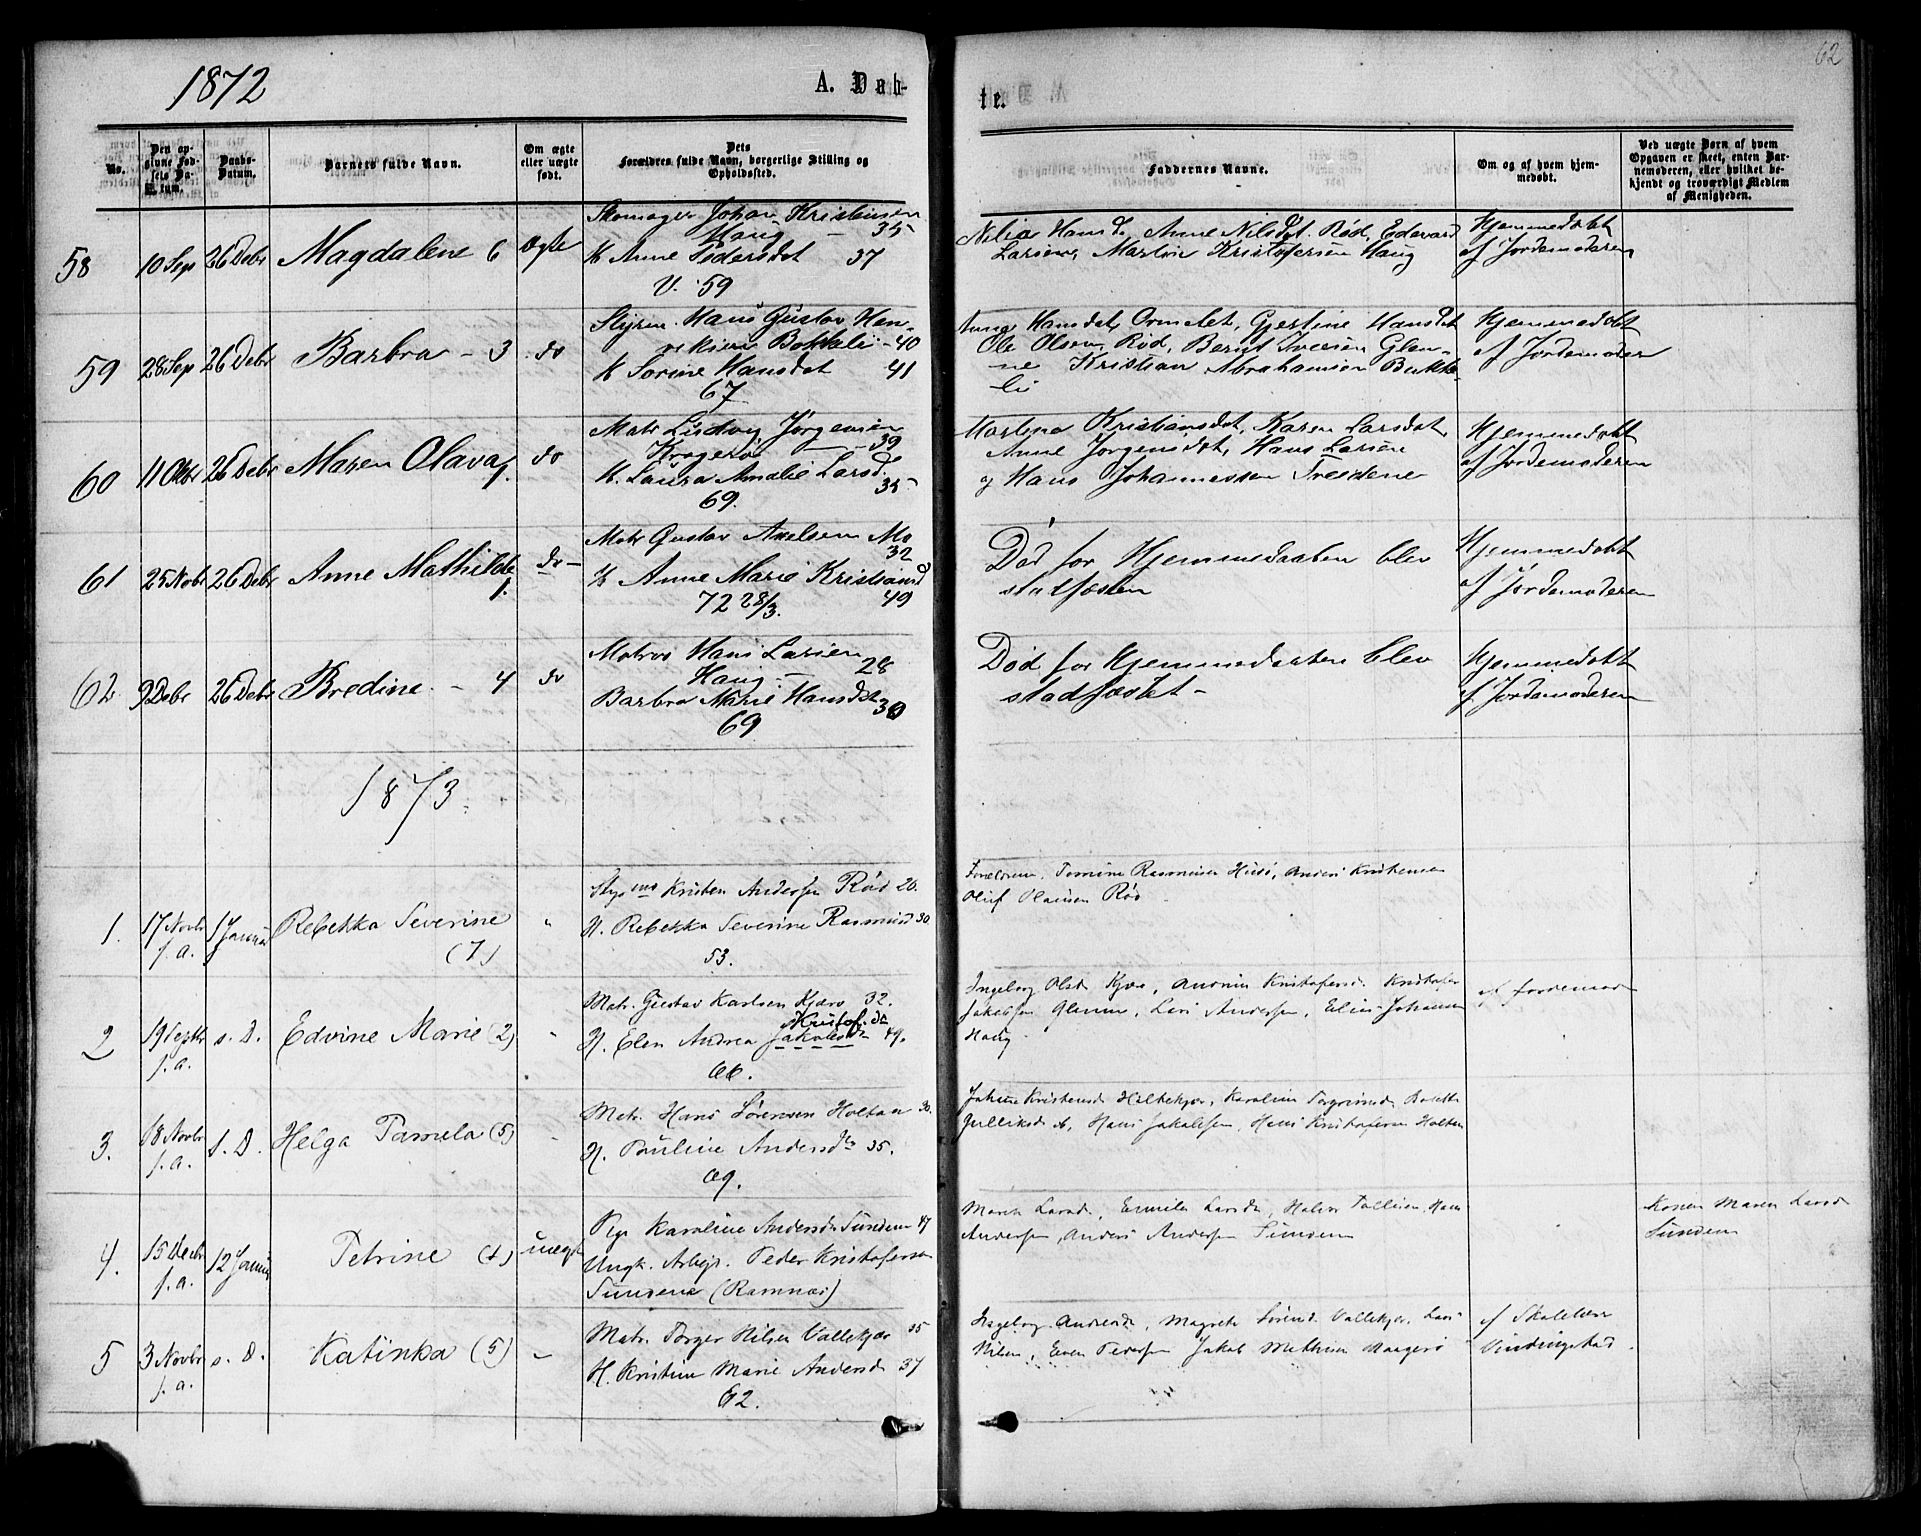 1872
A. Døb-
te.
62
No.
Den op-
givne Fød-
sels Da-
tum.
Daabs-
Datum.
Barnets fulde Navn.
Om ægte
eller uægte
født.
Dets
Forældres fulde Navn, borgerlige Stilling og
Opholdssted.
Faddernes Navne.
Om og af hvem hjem-
medøbt.
Ved uægte Børn af hvem
Opgaven er skeet, enten Bar-
nemoderen, eller hvilket be-
kjendt og troværdigt Medlem
af Menigheden.
58 10 Sep 26 Debr Magdalene 6 Ægte
Skomager Johan Kristiansen
Haug - 35
K Anne Pedersdat 37
V. 59
Hansd. Anne Nilsdat. Rød, Edevard
Larsen, Martin Kristofersen Haug
Hjemmedøbt
af Jordemoderen
59 28 Sep 26 Debr Barbra - 3 do
Styrm. Hans Gustav Hen-
riksen Bakkeli - 40
K Sorine Hansdat 41
67
Anna Hansdat, Ormelet, Gjertine Hansdat
Ole Olsen, Rød, Bernt Iversen Glen-
ne Kristian Abrahamsen Bakke-
li
Hjemmedøbt
af Jordemoder
60 11 Okbr 26 Debr Maren Olava 1. do
Matr Ludvig Jørgensen
Kragerø - 39
K. Laura Amalie Larsd. 35
69.
Martine Kristiansdat, Karen Larsdat,
Anne Jørgensdat, Hans Larsen
og Hans Johannessen Treidene
Hjemmedøbt
af Jordemoderen
61 25 Nobr 26 Debr Anne Mathilde 1. do -
Matr Gustav Axelsen Mo
32
K Anne Marie Kristiansd
72 28/3. 49
Død før Hjemmedaaben blev
stadfæsten
Hjemmedøbt
af Jordemoderen
62 9 Debr 26 Debr Bredine - 4 do
Matros Hans Larsen
Haug - 28
Barbra Marie Hansdat 30
69
Død før Hjemmedaaben blev
stadfæstet -
Hjemmedøbt
af Jordemoderen
1873.
1. 17 Novbr f. a. 1 Januar Rebekka Severine (7) "
Stgsmd Kristen Andersen Rød 20.
H. Rebekka Severine Rasmusd 30
53.
Forældrene, Tomine Rasmusen Husø, Anders Kristensen
Oluf Olausen Rød
2 19 Septbr f. a. s. D. Edvine Marie (2) "
Matr. Gustav Karlsen Kjære 32.
Kristof. da
H. Elen Andrea Jakobsd 49.
66.
Ingeborg Olsd Kjær, Kristofersd. Kristofer
Jakobsen Glenne, Lars Andersen, Elias Johansen
Haug.
af Jordemod
3. 18 Novbr f. a. s. D. Helga Pamela (5)
Matr. Hans Sørensen Holtan 30.
H. Pauline Andersdtr 35.
69.
Kristensd Holtekjær, Karoline Torgrimsd,
Gulliksd, Hans Jakobsen, Hans Kristofersen Holtan
4. 15 Decbr f. a. 12 Januar Petrine (1) uægte
Pige Karoline Andersd Sundene 47
Ungk. Arbejd. Peder Kristofersen
Sundene (Ramnæs)
Maren Larsd, Emilie Larsd, Halvor Tollefsen, Hans
Andersen, Anders Andersen Sundene
Konen Maren Larsd
Sundene
5 3 Novbr f. a. s. D. Katinka (5) "
Matr. Torger Nilsen Vallekjær 35
H. Kristine Marie Andersd 37
62.
Ingeborg Andersd, Magrete Sørensd Vallekjær, Lars
Nilsen, Even Pedersen Jakob Mathisen Haagerø
af Skolelærer
Vindingstad.